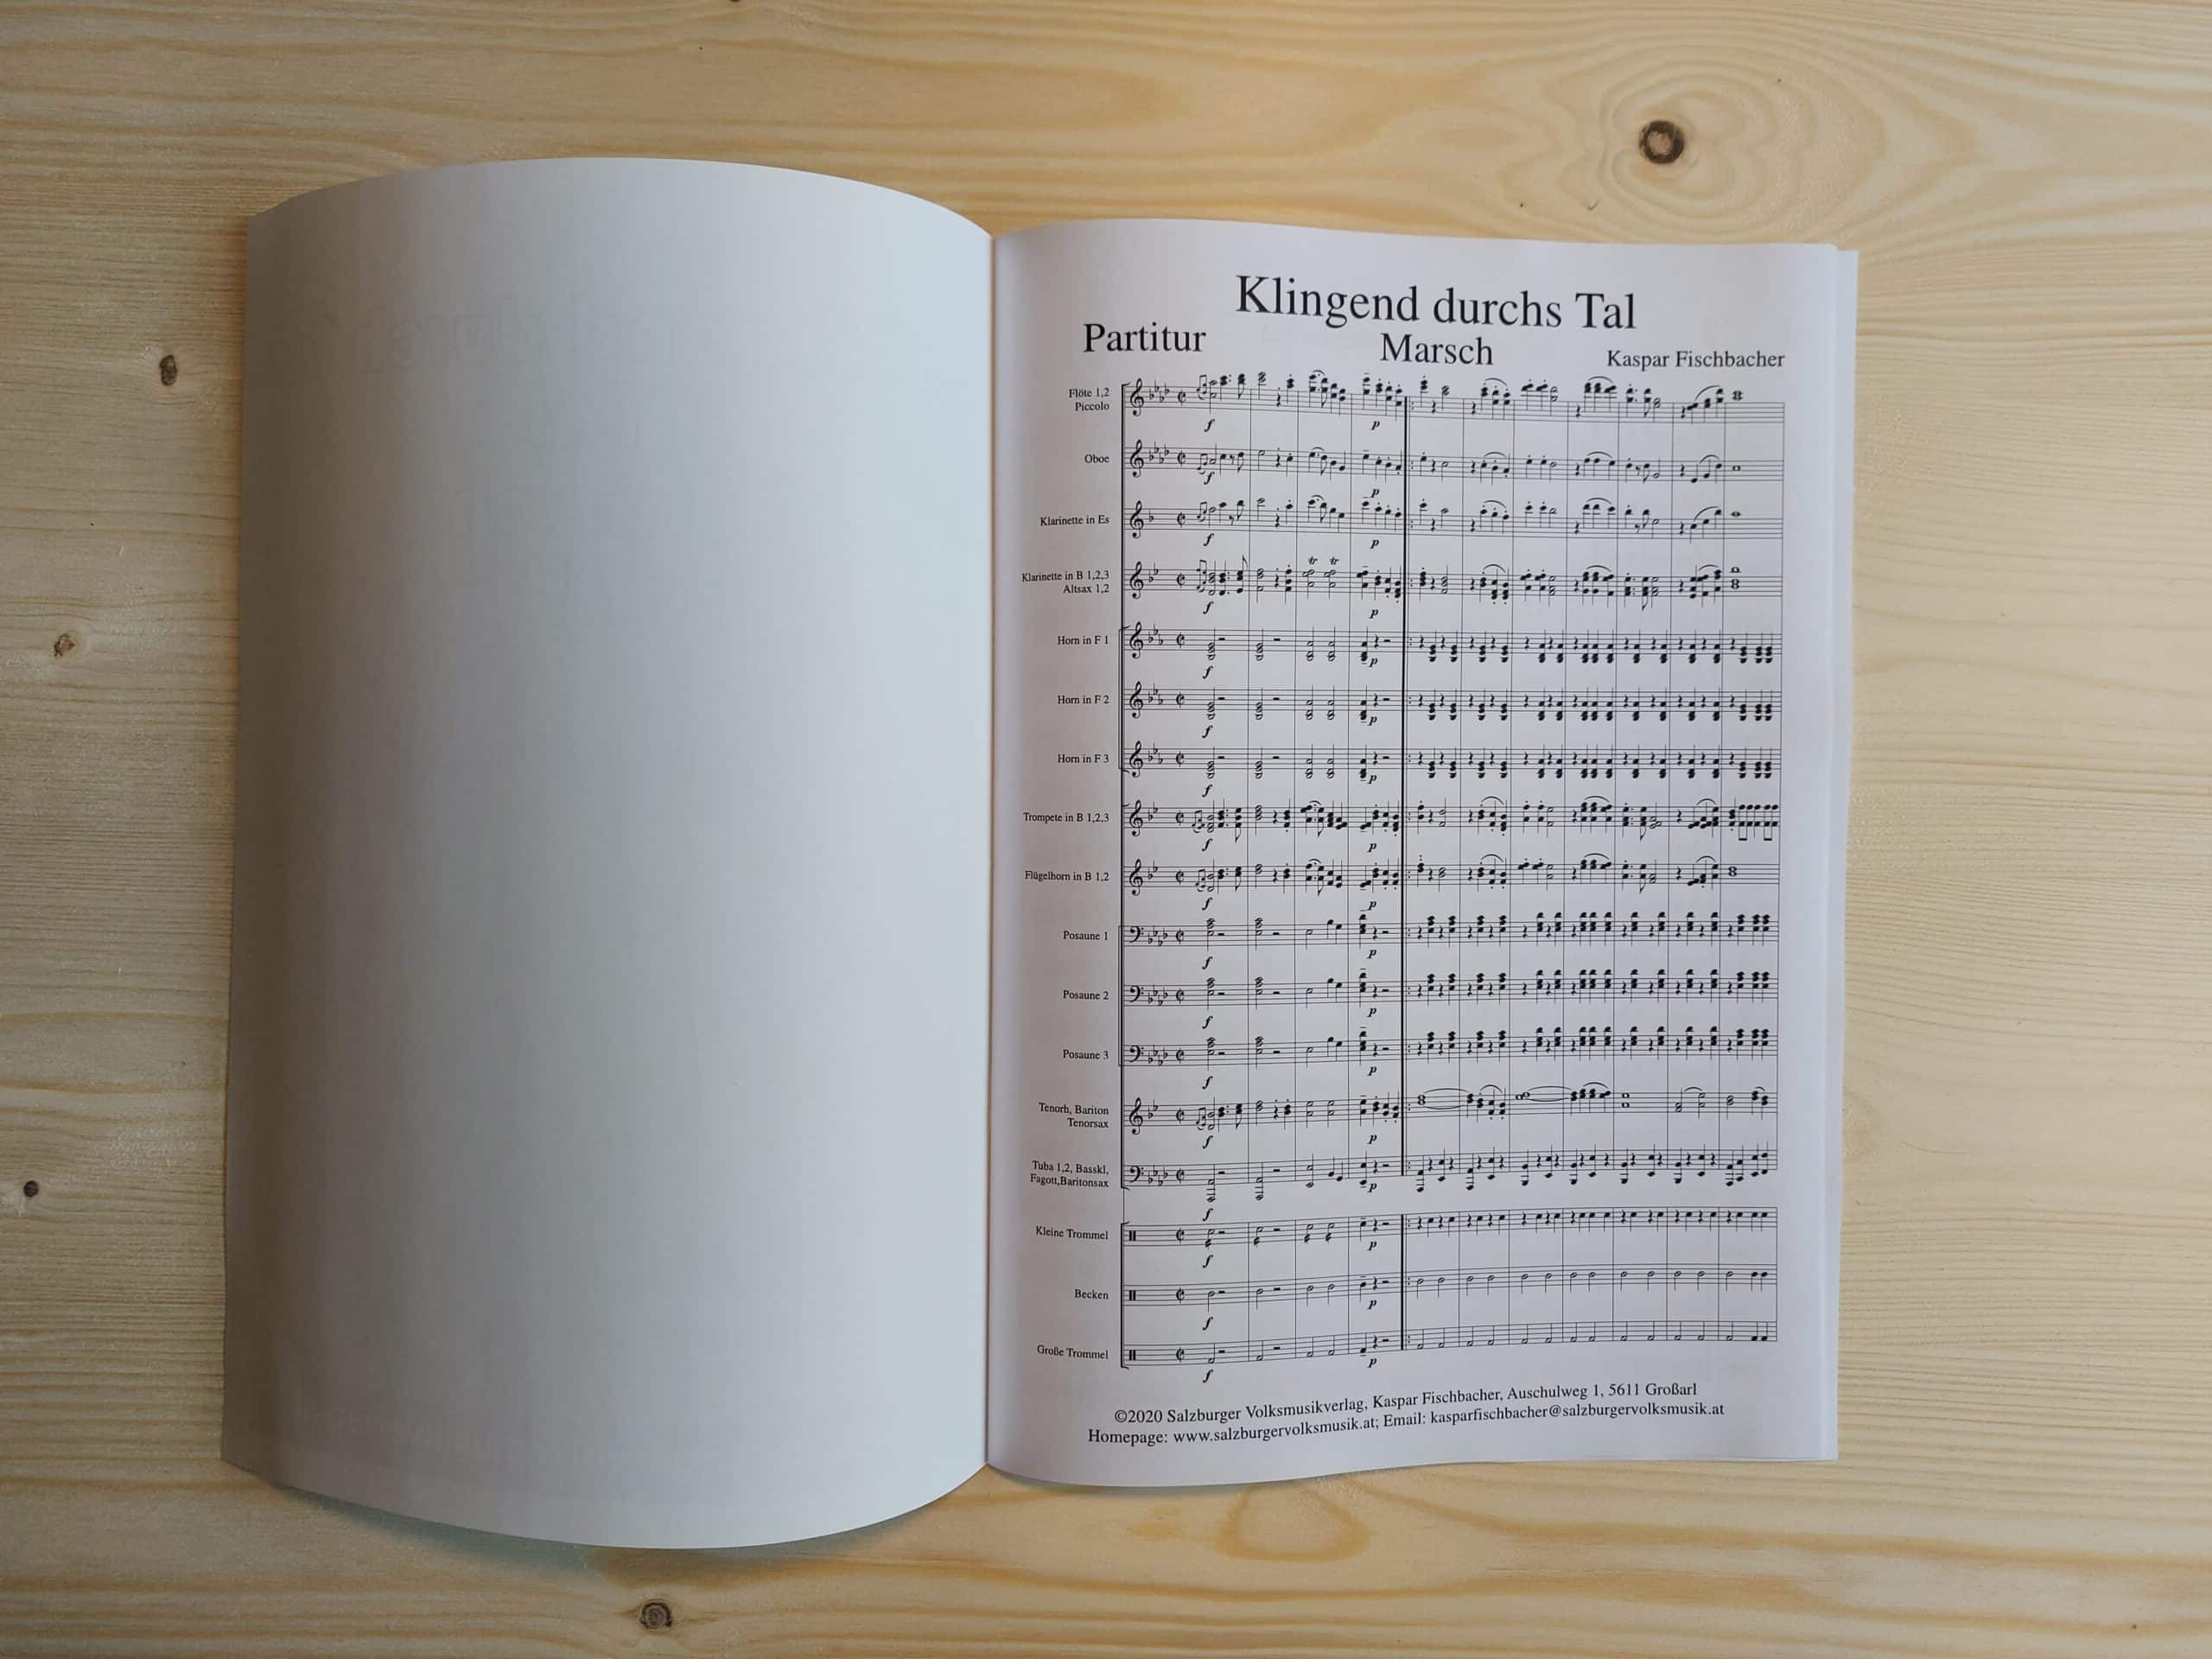 Klingend durchs Tal
Partitur
Marsch
Kaspar Fischbacher
Flöte 1,2
Piccolo
f
p
Oboe
f
p
Klarinette in Es
f
p
Klarinette in B 1,2,3
Altsax 1,2
tr tr
f
p
Horn in F 1
f
p
Horn in F 2
f
p
Horn in F 3
f
p
Trompete in B 1,2,3
f
p
Flügelhorn in B 1,2
f
p
Posaune 1
f
p
Posaune 2
f
p
Posaune 3
f
p
Tenorh, Bariton
Tenorsax
f
p
Tuba 1,2, Basskl,
Fagott,Baritonsax
f
p
Kleine Trommel
f
p
Becken
f
p
Große Trommel
f
p
©2020 Salzburger Volksmusikverlag, Kaspar Fischbacher, Auschulweg 1, 5611 Großarl
Homepage: www.salzburgervolksmusik.at; Email: kasparfischbacher@salzburgervolksmusik.at